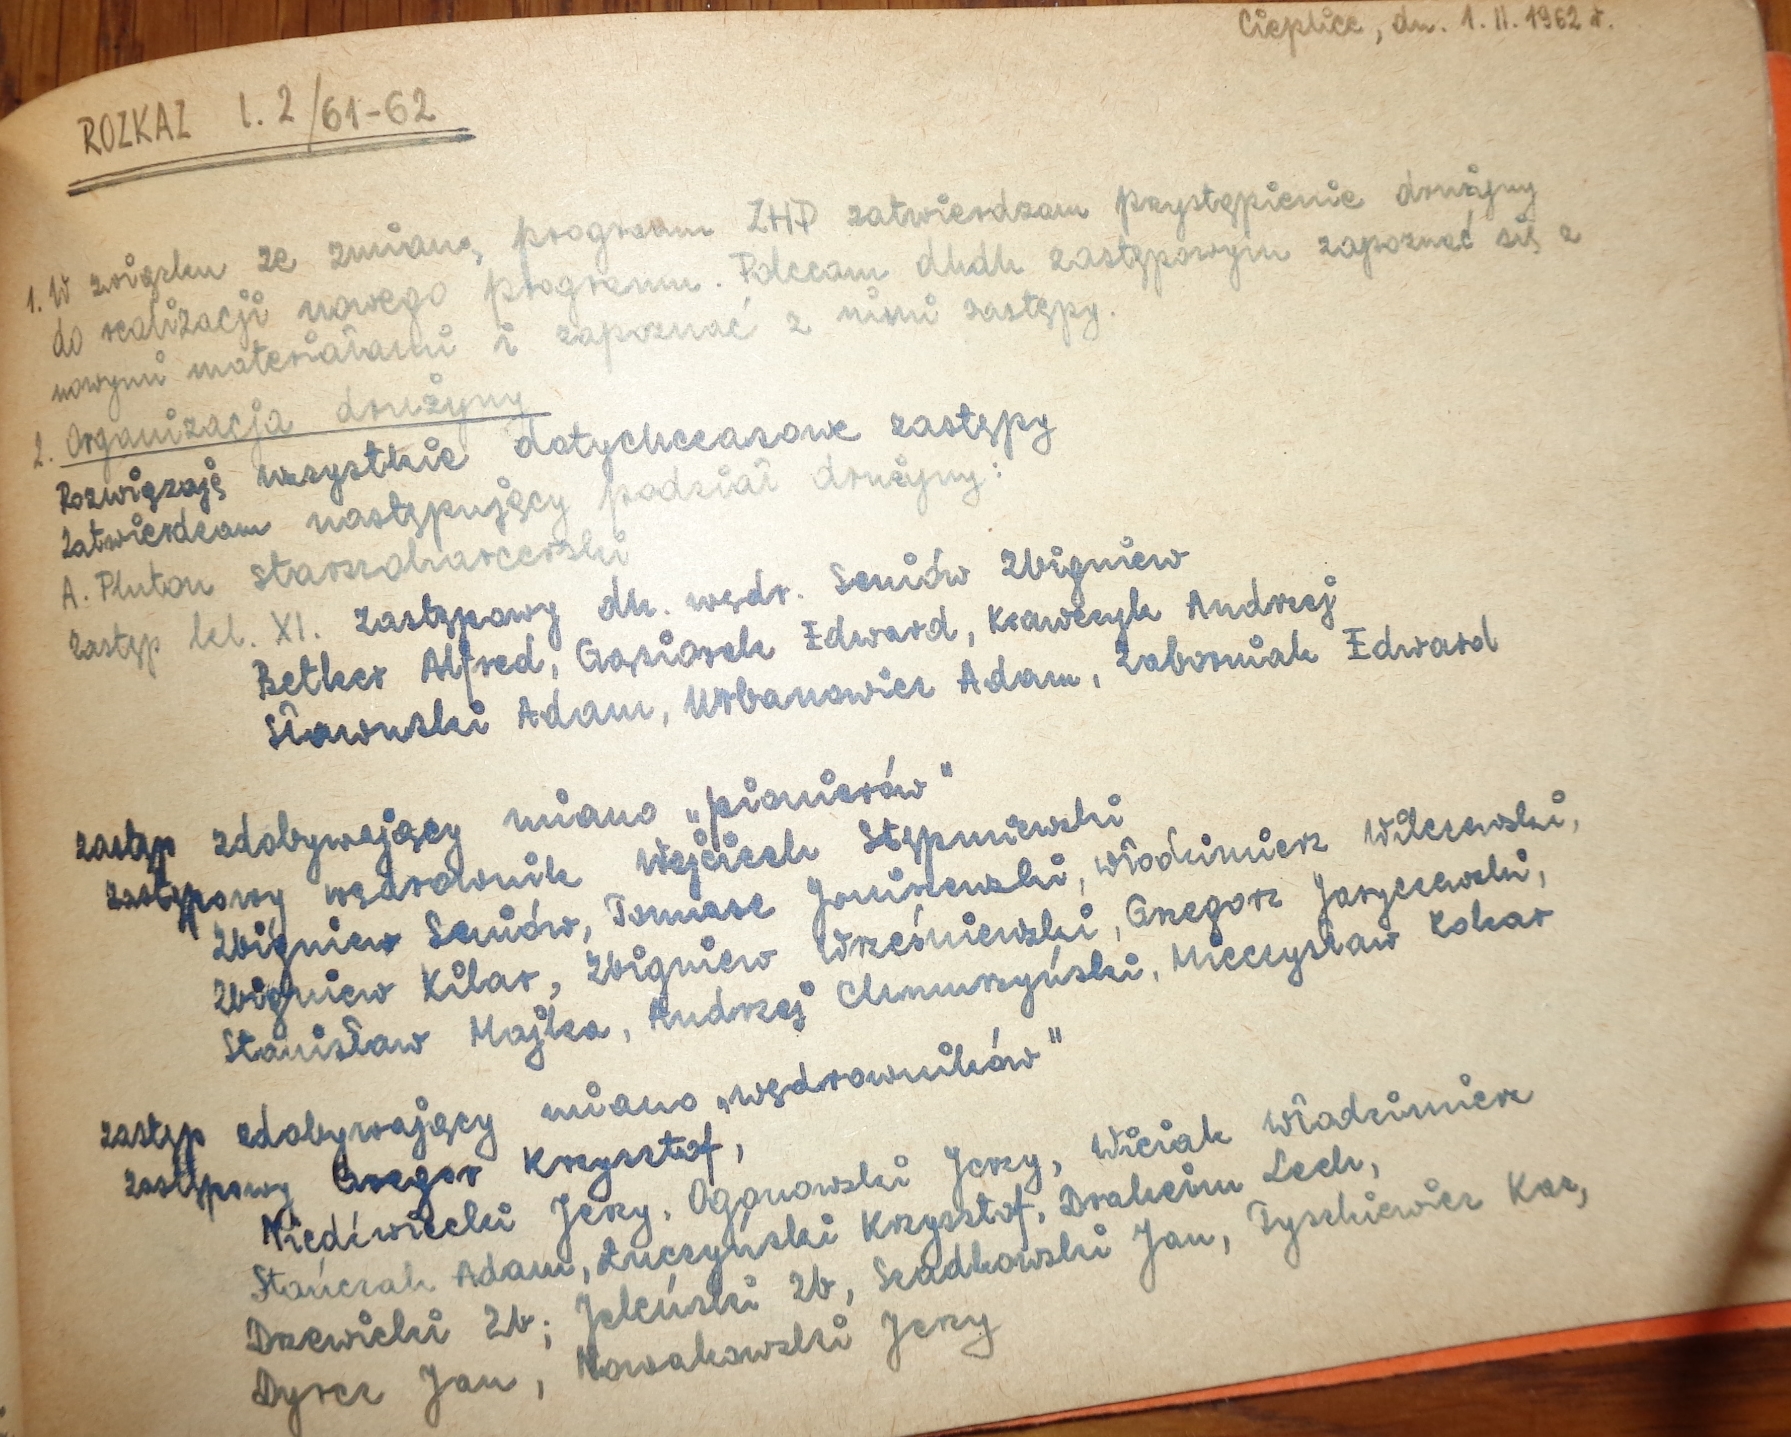 Cieplice, dn. 1.II.1962 r.
ROZKAZ l. 2/61-62
1. W związku ze zmianą program ZHP zatwierdzam przystąpienie drużyny
do realizacji nowego programu. Polecam dhdh zastępowym zapoznać się z
nowymi materiałami i zapoznać z nimi zastępy.
2. Organizacja drużyny
Rozwiązuję wszystkie dotychczasowe zastępy
Zatwierdzam następujący podział drużyny:
A. Pluton starszoharcerski
Zastęp kl. XI. Zastępowy dh. wędr. Seniów Zbigniew
Betker Alfred, Gąsiorek Edward, Krawczyk Andrzej
Sławuski Adam, Urbanowicz Adam, Zaborniak Edward
Zastęp zdobywający miano „pionierów"
Zastępowy wędrownik Wojciech Stępniewski
Zbigniew Seniów, Tomasz Joniszewski, Włodzimierz Wilczewski,
Zbigniew Kilar, Zbigniew Wrześniewski, Grzegorz Jaryczewski,
Stanisław Majka, Andrzej Chmurzyński, Mieczysław Kokar
Zastęp zdobywający miano „wędrowników"
Zastępowy Gregor Krzysztof,
Niedźwiecki Jerzy, Ogonowski Jerzy, Wiciak Włodzimierz
Stańczak Adam, Łuczyński Krzysztof, Draheim Lech,
Drzewicki Zb; Jeleński Zb, Szadkowski Jan, Tyszkiewicz Kaz,
Dyrcz Jan, Nowakowski Jerzy